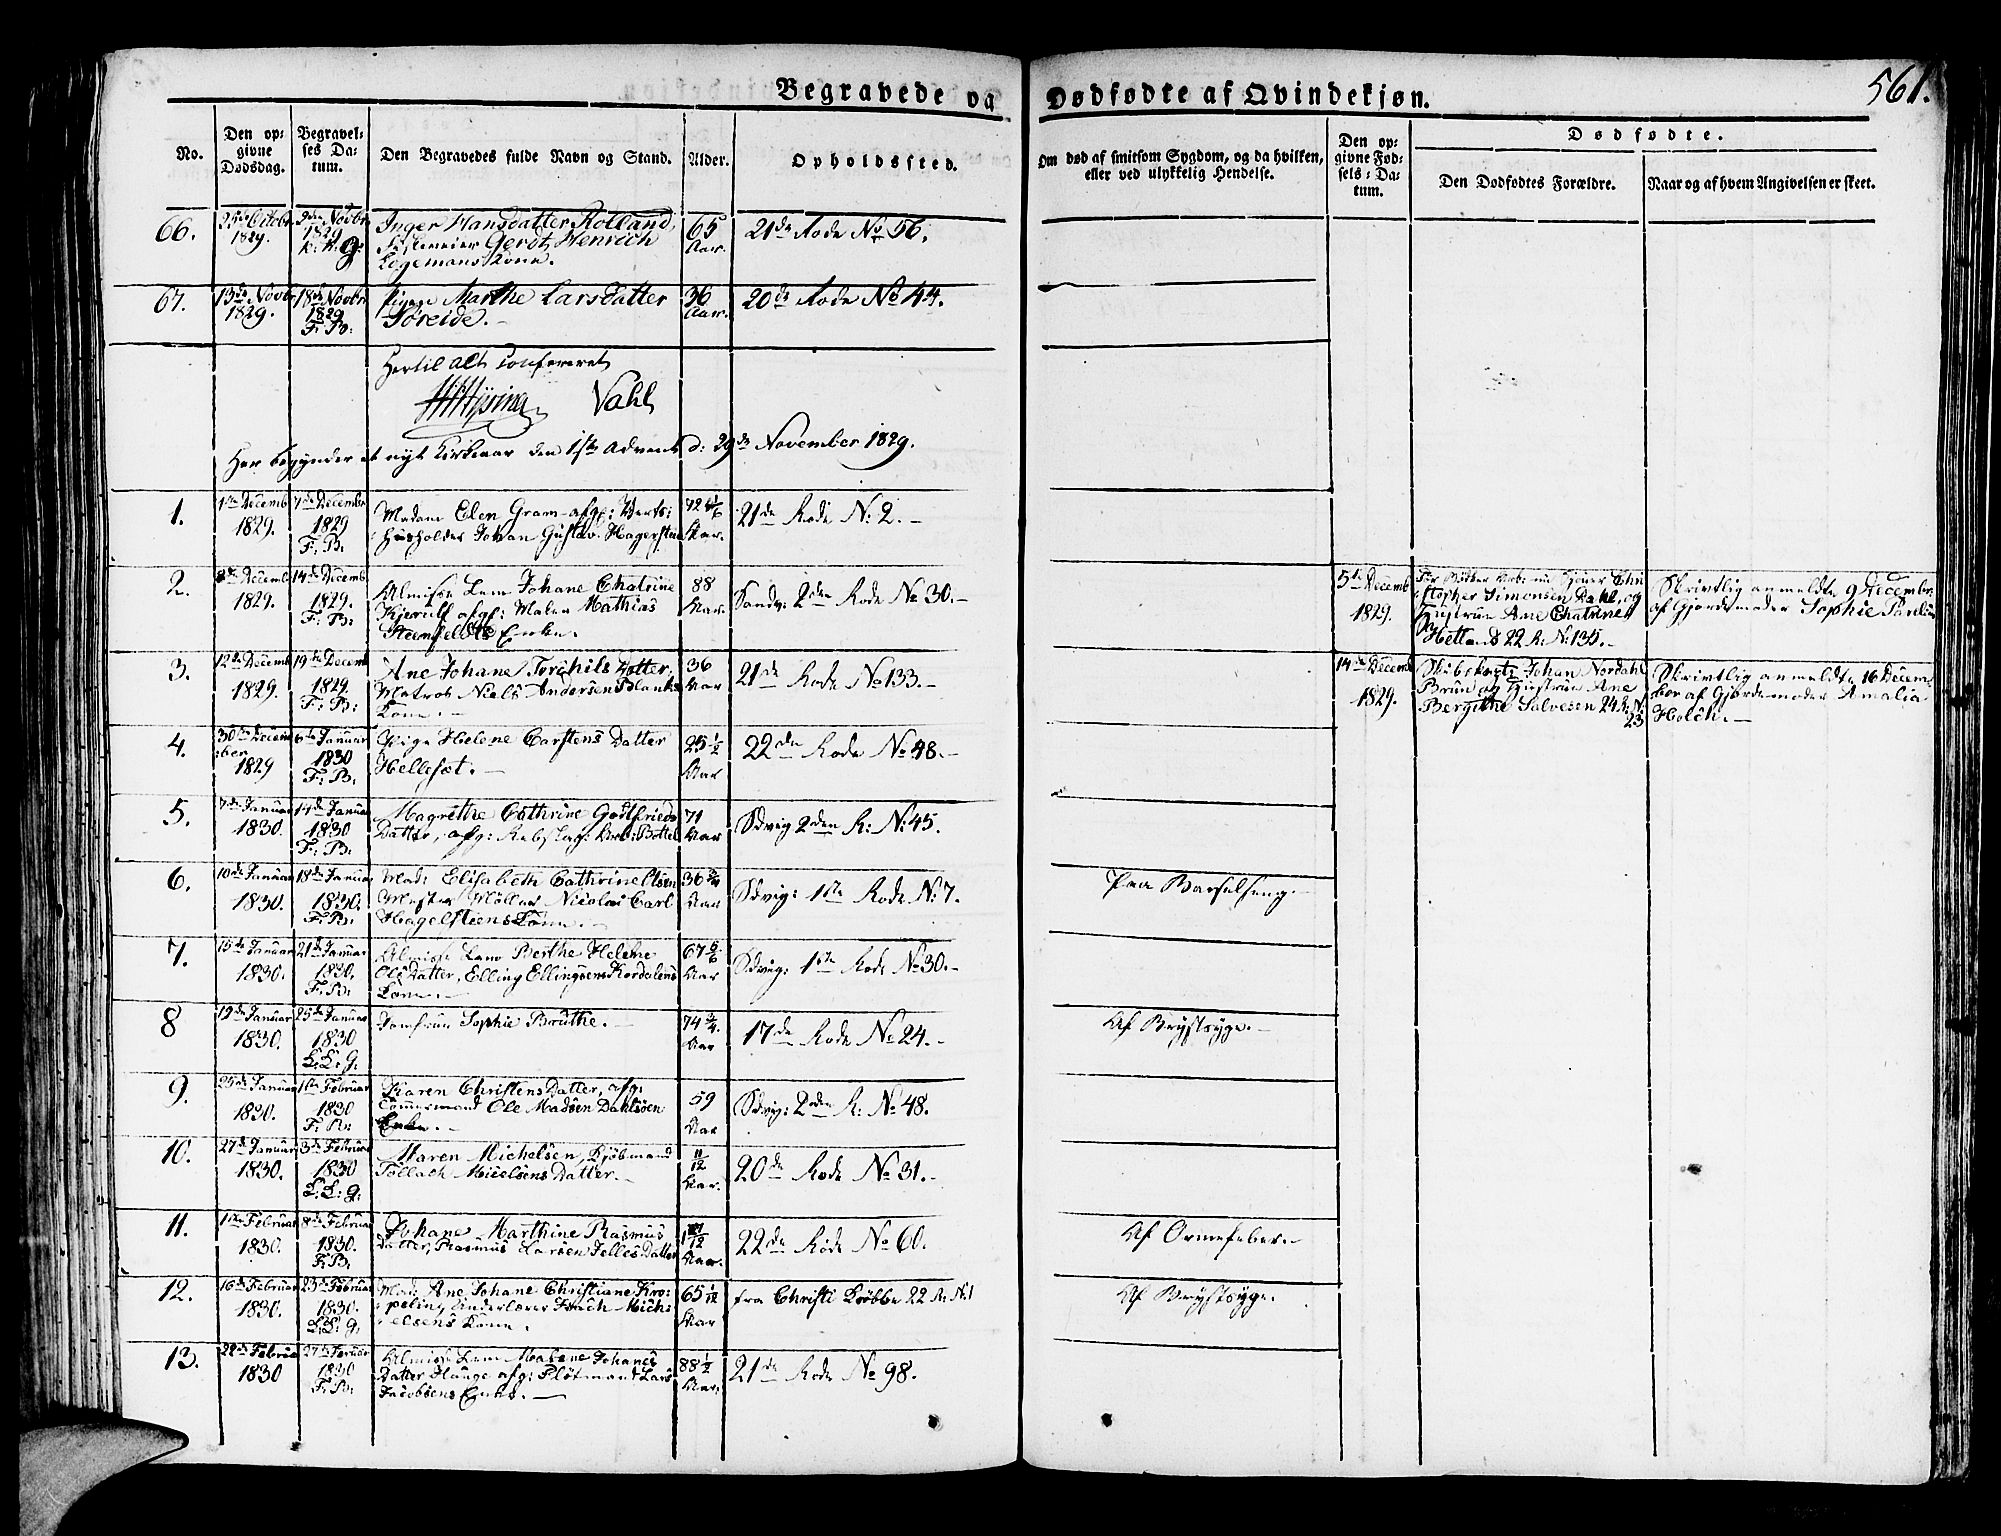 561.
Begravede og Dødfødte af Qvindekjøn.
No.
Den op=
givne
Dødsdag.
Begravel=
ses Da=
tum.
Den Begravedes fulde Navn og Stand.
Alder.
Opholdssted.
Om død af smitsom Sygdom, og da hvilken,
eller ved ulykkelig Hendelse.
Den op=
givne Fød=
sels=Da=
tum.
Dødfødte.
Den Dødfødtes Forældre.
Naar og af hvem Angivelsen er skeet.
66.
25de Octobr
1829.
9den Novbr
1829
K: K. G:
Inger Hansdatter Rolland,
Gerdt Henrich
Logemans Kone.
65
Aar.
21de Rode No 56.
67.
13de Novbr
1829.
18de Novbr
1829
F: B:
Pigen Marthe Larsdatter
Søreide.-
36
Aar.
20de Rode No 44.
Hertil alt confereret
Vahl
Her begynder et nyt Kirkeaar den 1ste Advent d: 29de November 1829.
1.
1ste Decemb
1829.
7de Decembr
1829
F: B:
Madam Elen Gram afg: Verts:
husholder Johan Gustav Hagerstien
72 1/6
Aar.
21de Rode N: 2.-
2.
8de Decemb
1829.
14de Decemb
1829.
F: B:
Almisse Lem Johane Chatrine
Kjerulf afg: Maler Mathias
Steenfeldts Enke.
88
Aar.
Sandv: 2den Rode No 30.-
5te Decemb
1829.
Christopher Simonsen Dahl, og
Hustrue Ane Chatrine
Hetland 22 R: N: 135.
Skrivtlig anmeldt 9 Decembr
af Gjordemoder Sophie
3.
12de Decemb
1829.
19de Decemb
1829.
F: B:
Ane Johane Torchilsdatter,
Matros Niels Andersen Blanks
Kone.-
36
Aar
21de Rode No 133.-
14de Decemb
1829.
Johan Nordahl
Brun og Hustrue Ane
Bergithe Salvesen 24 R: N:
23
Skrivtlig anmeldt 16 Decem-
ber af Gjordemoder Amalia
Holch.-
4.
30te Decem
ber
1829
6te Januar
1830
F: B:
Pige Helene Carstens Datter
Hellesæt.-
25 1/2
Aar
22de Rode No 48.-
5.
7de Januar
1830.
14de Januar
1830
F: B:
Magrethe Cathrine Godtfrieds
Datter, afg: Rebslag:
71
Aar
Sdvig 2den R: N: 45.
6.
10de Januar
1830.
18de Januar
1830.
F: B:
Mad: Elisabeth Cathrine Olsen
Mester Møller Nicolai Carl
Hagelstiens Kone.-
36 3/4
Aar
Sdvig: 1ste Rode N: 7.
Paa Barselseng.-
7.
15de Januar
1830.
21de Januar
1830.
F: B:
Almisse Lem Berthe Helene
Ols Datter, Elling Ellingsens Kordalens
Kone.-
67 5/6
Aar
Sdvig: 1ste Rode No 30.-
8
19de Januar
1830.
25de Januar
1830
L: L: G.
Jomfrue Sophie Bruthe.-
74 3/4.
Aar
17de Rode No 24.-
Af Brystsyge.-
9.
25de Januar
1830.
1ste Februar
1830
F: B:
Karen Christens Datter, afg:
Tømmermand Ole Madsen Dahlsøen
Enke.-
59
Aar
Sdvig: 2den R: No 48.
10.
27de Januar
1830.
3de Februar
1830
L: L: G.
Maren Michelsen, Kjøbmand
Tollach Micelsens Datter.-
11/12
Aar.
20de Rode No 31.-
11.
1ste Februar
1830.
8de Februar
1830.
F: B:
Johane Marthine Rasmus
Datter, Rasmus Larsen Jelles Datter
1 11/12
Aar.
22de Rode No 60.
Af Ormefeber.-
12.
16de Februar
1830.
23de Februar
1830.
L: L: G.
Mad: Ane Johane Christiane Kro=
peling Mich=
elsens Kone.
65 1/12
Aar
fra Christi Krøbbe 22 R. N: 1
Af Brystsyge.
13.
22de Februar
1830
27de Februar
1830
F: B:
Almisse Lem Malene Johanes
Datter Hauge afg: Lars
Jacobsens Enke.-
88 1/2
Aar.
21de Rode No 98.